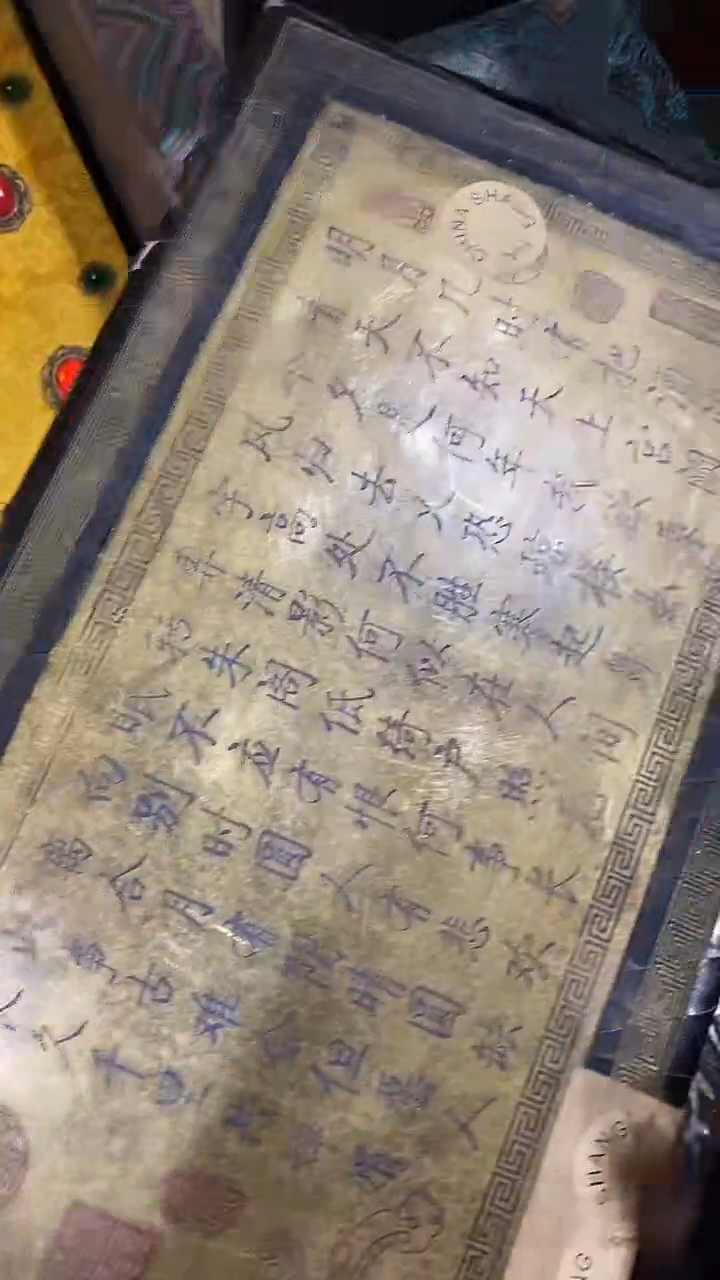 明月几时有把酒
青天不知天上宫阙
今夕是何年我欲乘
风归去又恐琼楼玉
宇高处不胜寒起舞
弄清影何似在人间
转朱阁低绮户照无
眠不应有恨何事长
向别时圆人有悲欢
离合月有阴晴圆缺
此事古难全但愿人
长久千里共婵娟